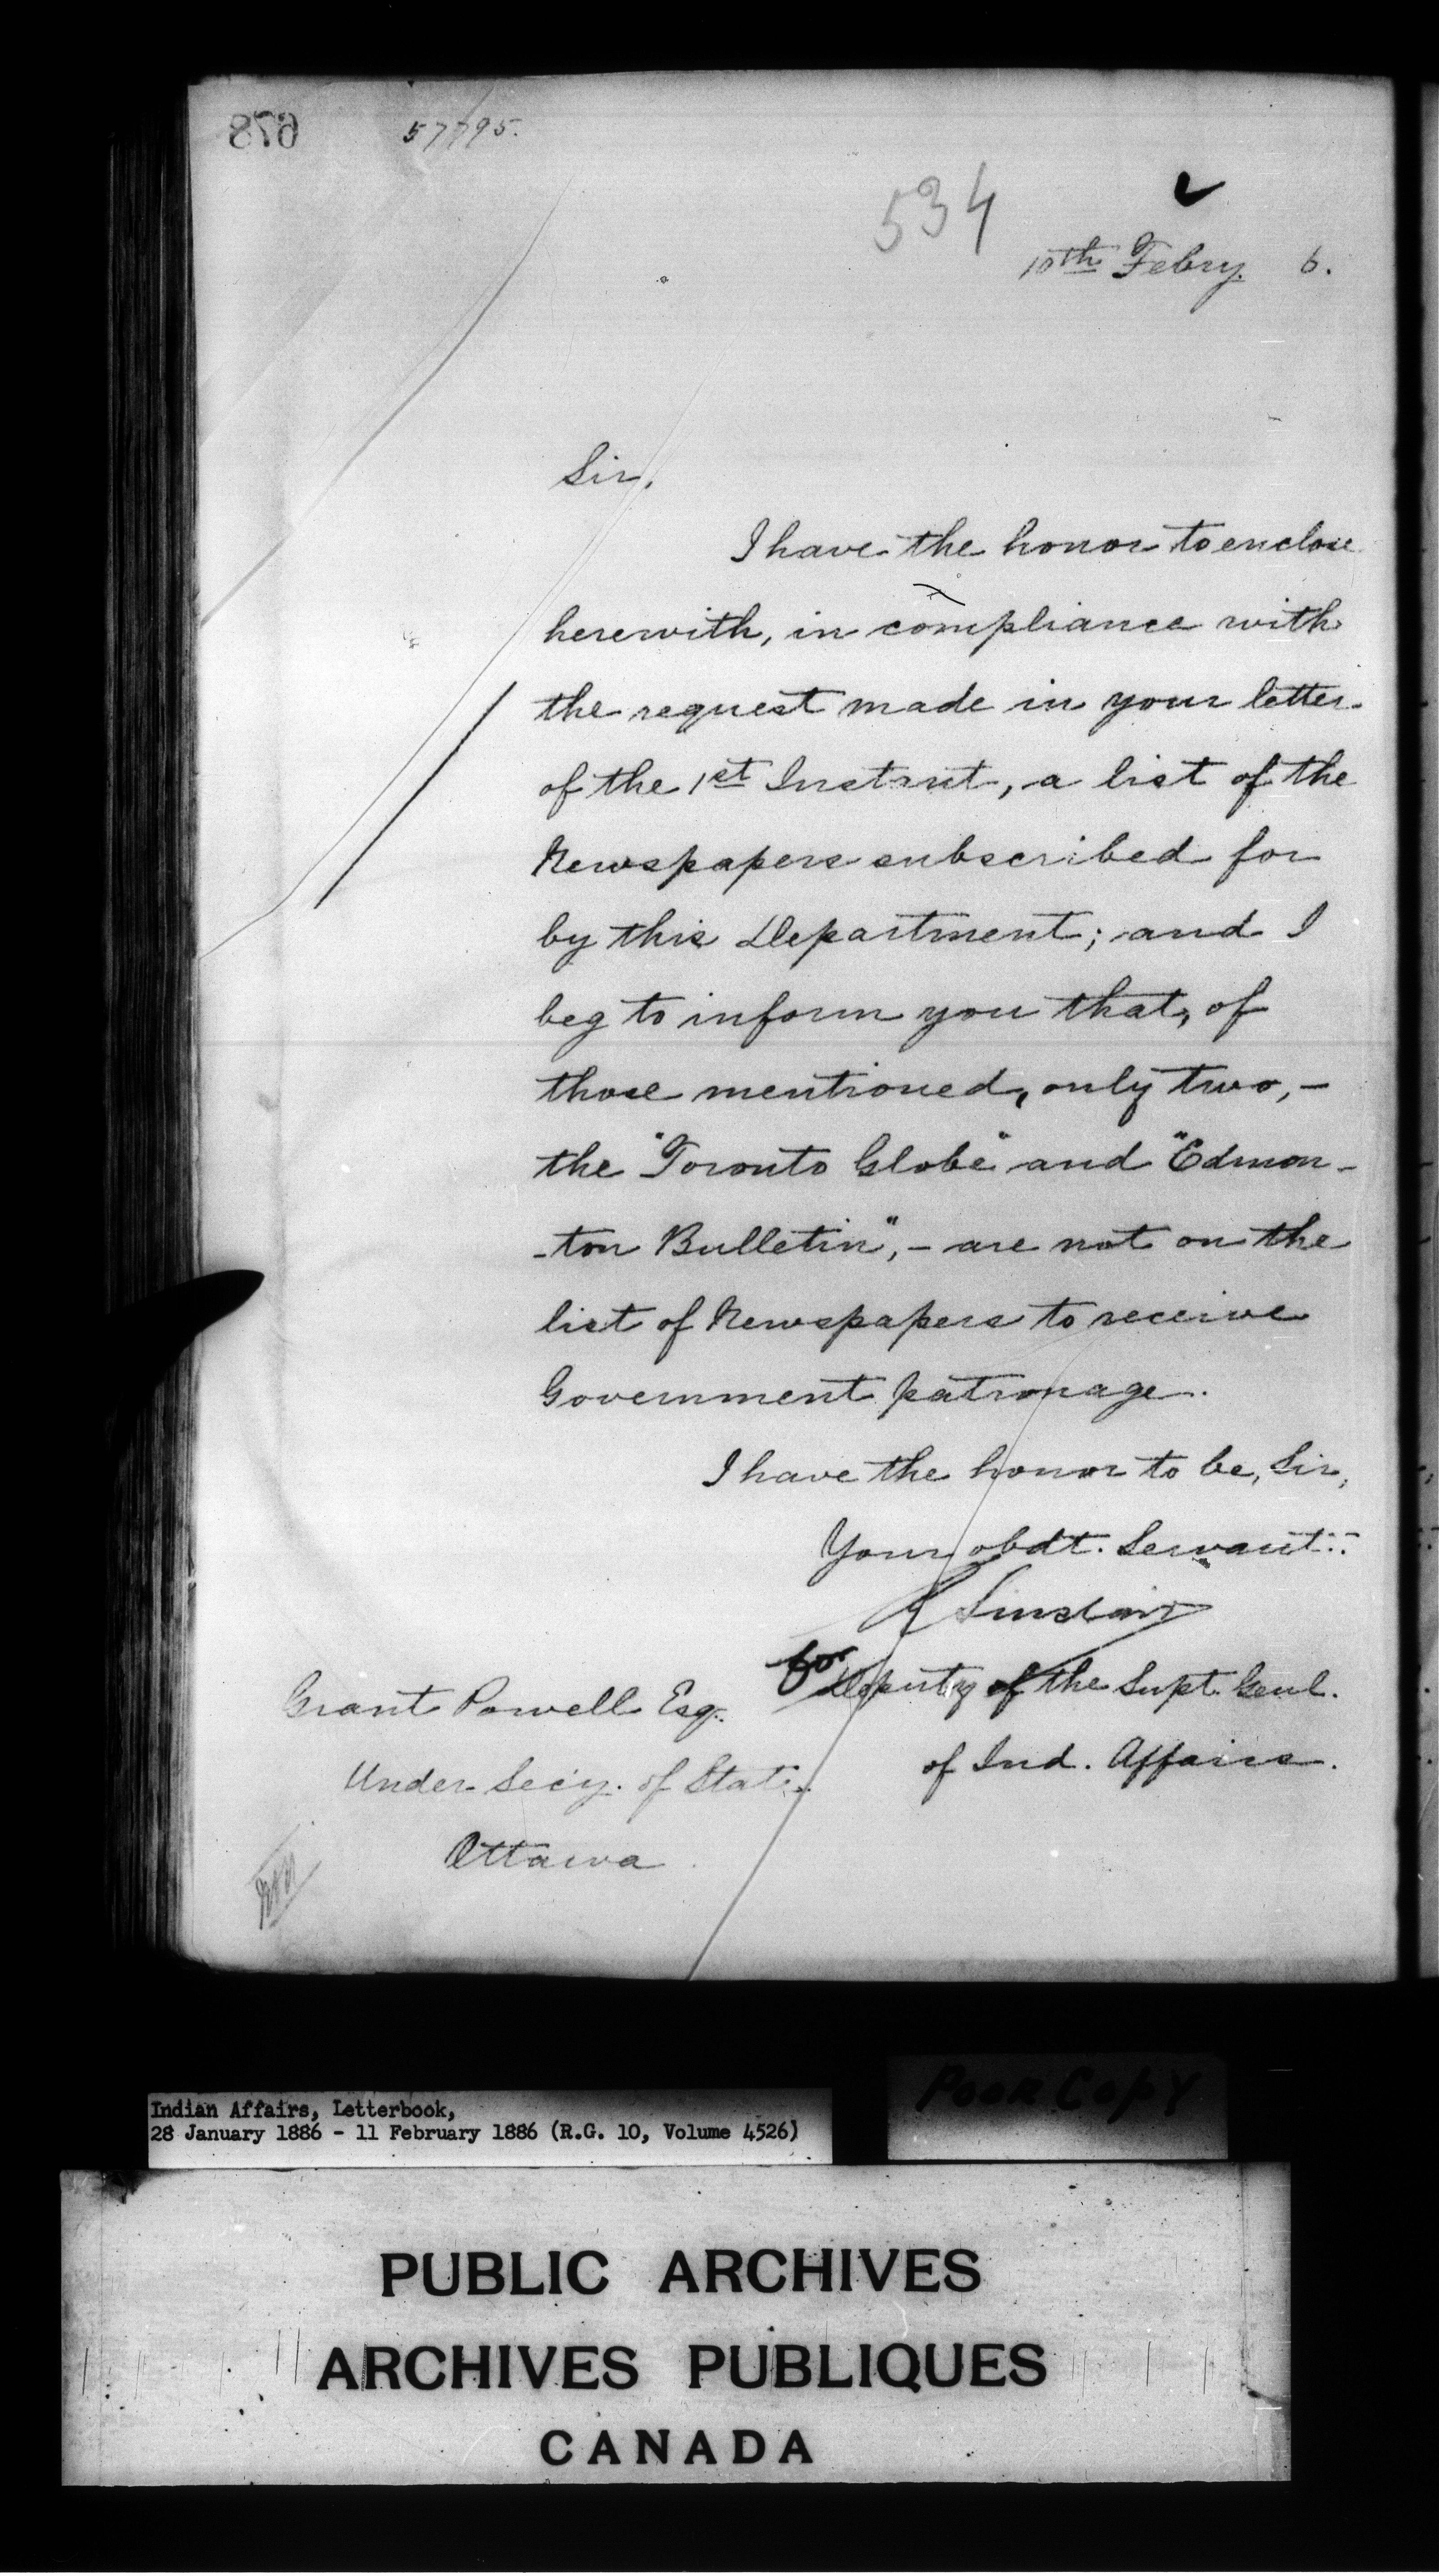 678
57795.
534
10th Febry. 6.
Sir,
I have the honor to enclose
herewith, in compliance with
the request made in your letter
of the 1st Instant, a list of the
Newspapers subscribed for
by this Department; and I
beg to inform you that, of
those mentioned, only two, -
the "Toronto Globe" and "Edmon-
-ton Bulletin", - are not on the
list of Newspapers to receive
Government patronage.
I have the honor to be, Sir,
Your obdt. Servant
Sinclair
for
Deputy of the Supt. Genl.
of Ind. Affairs.
Grant Powell Esq.
Under Secy. of State
Ottawa
POOR COPY
Indian Affairs, Letterbook,
28 January 1886 - 11 February 1886 (R.G. 10, Volume 4526)
PUBLIC ARCHIVES
ARCHIVES PUBLIQUES
CANADA